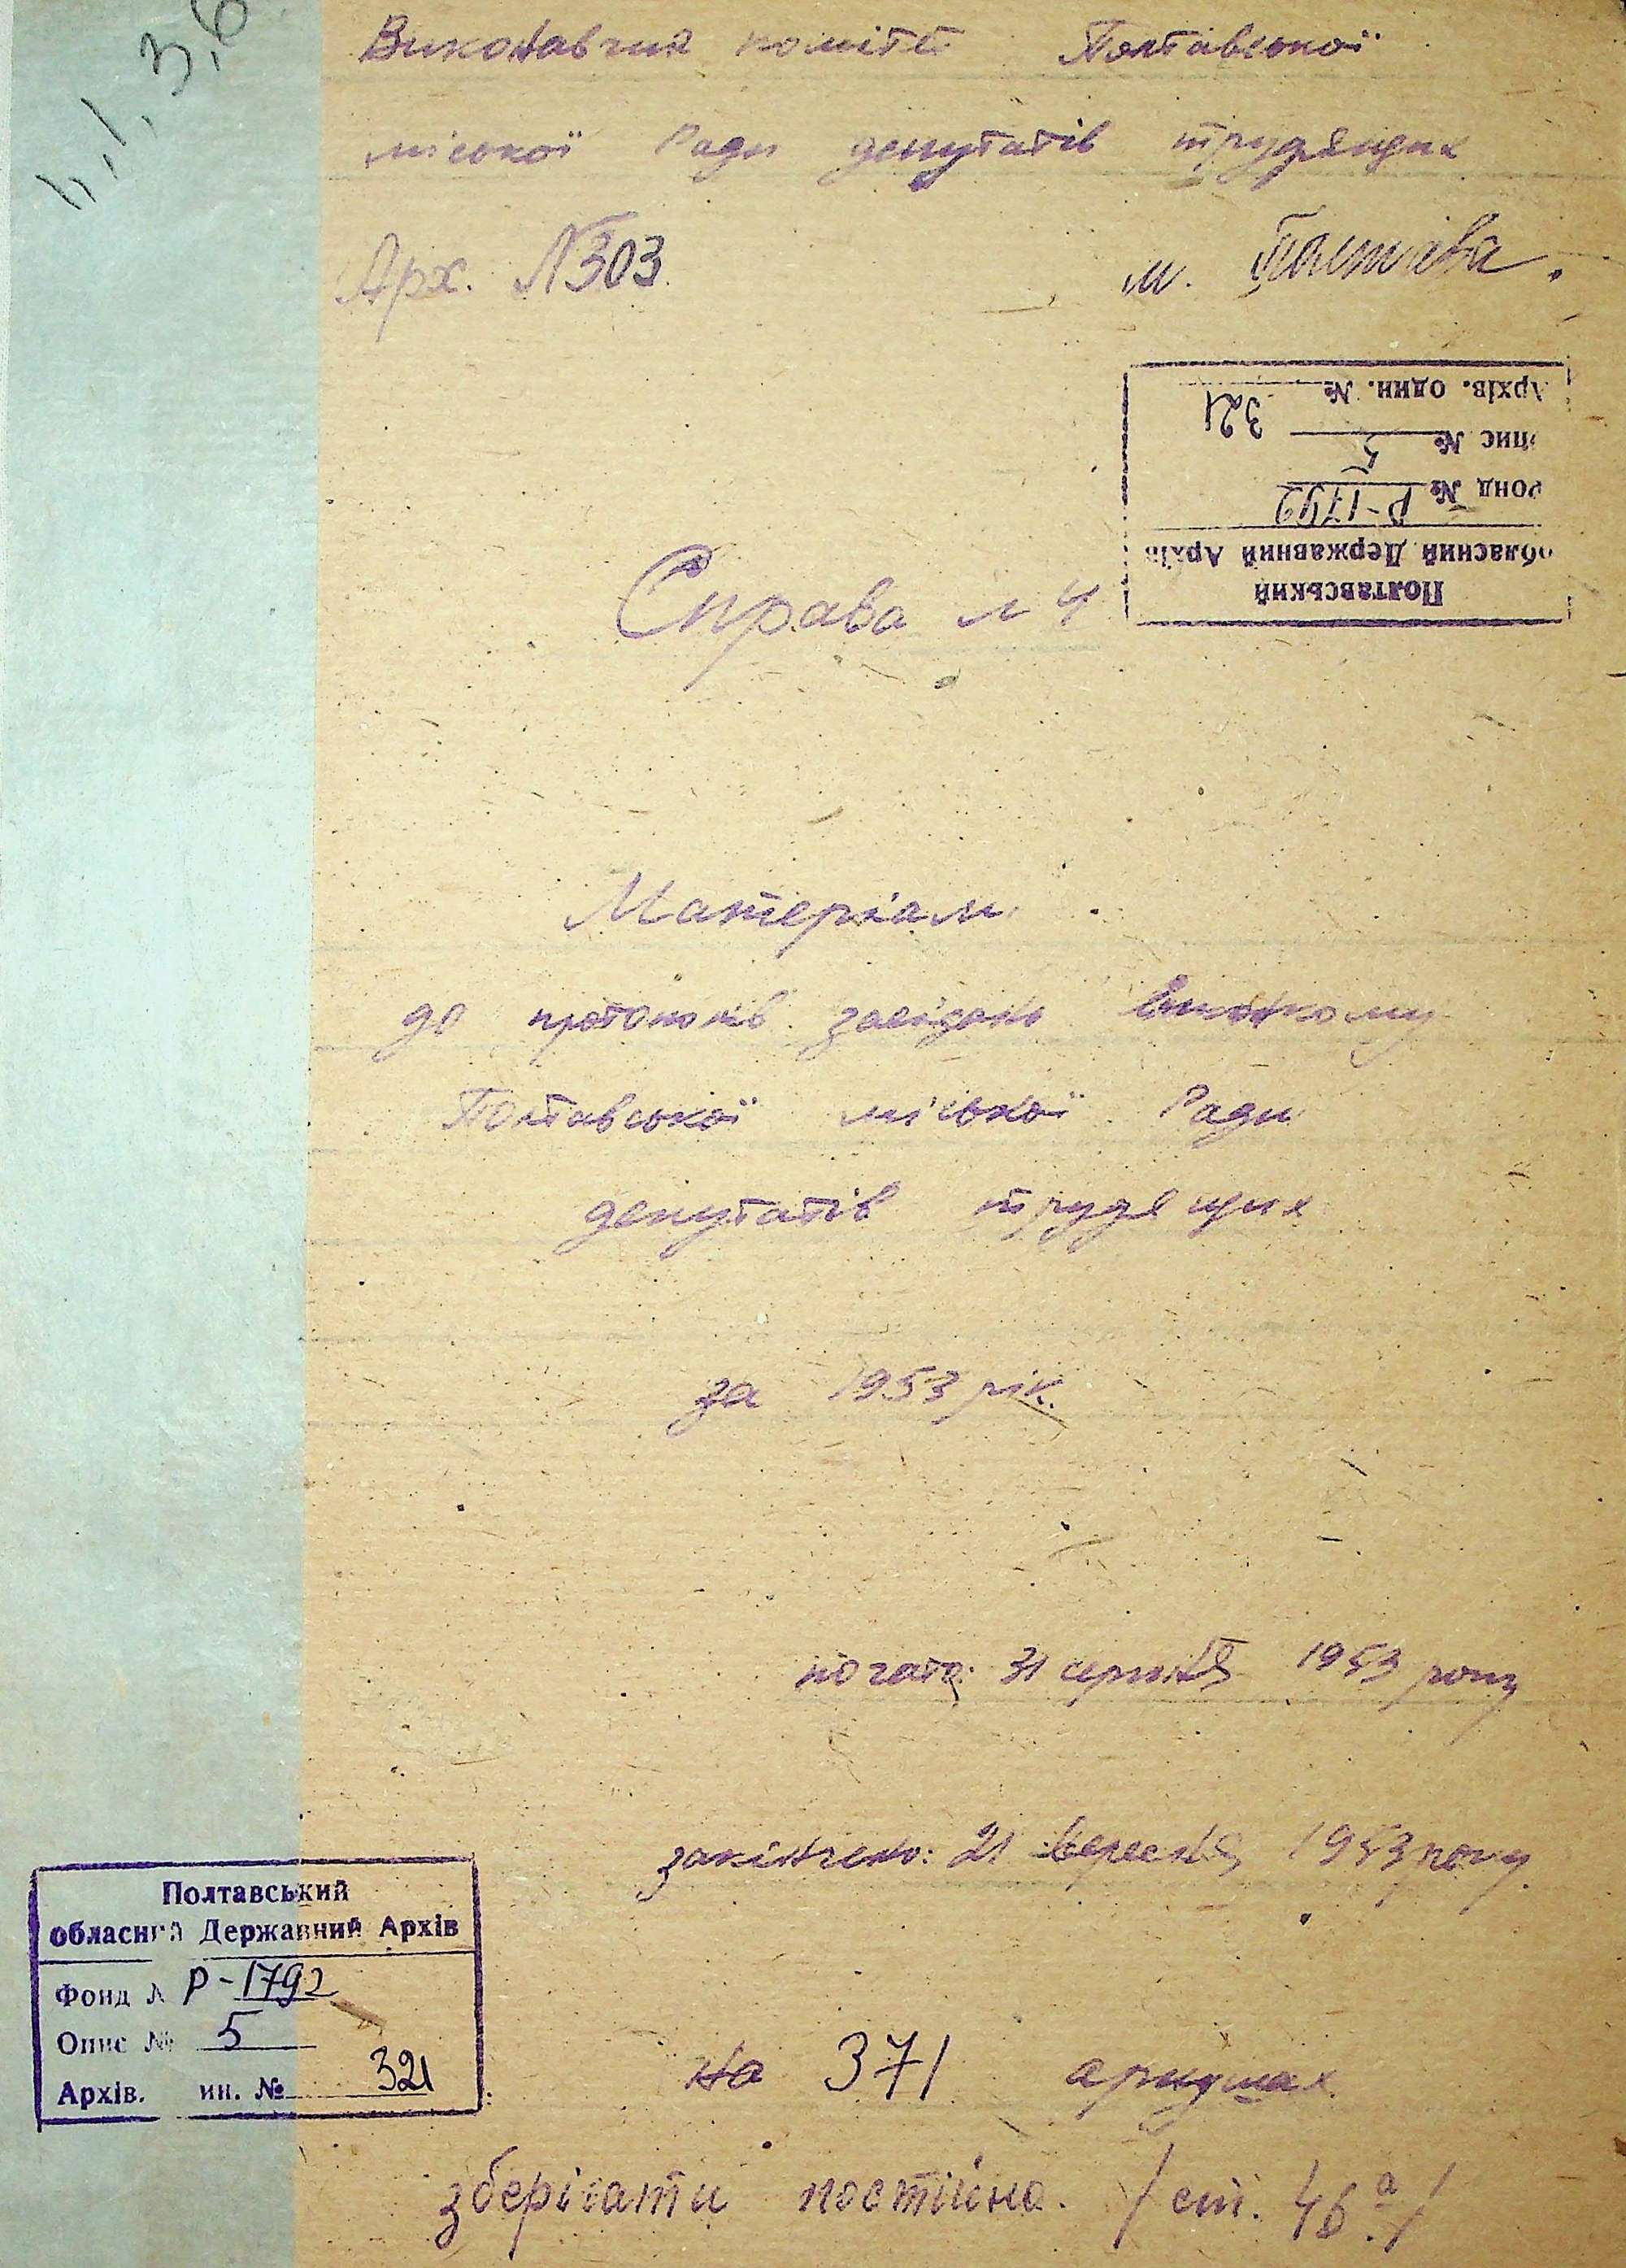 Виконавчий комітет Полтавської
міської Ради депутатів трудящих
Арх. №303
м. Полтава.
Полтавський
обласний Державний Архів
Фонд № Р-1792
Опис № 5
Архів. один. № 321
Справа № 4
Матеріали
до протоколів засідань виконкому
Полтавської міської Ради
депутатів трудящих
за 1953 рік.
почато: 31 серпня 1953 року
закінчено: 21 вересня 1953 року.
Полтавський
обласний Державний Архів
Фонд № Р-1792
Опис № 5
Архів. ин. № 321
на 371 аркушах.
зберігати постійно. /ст. 46а/